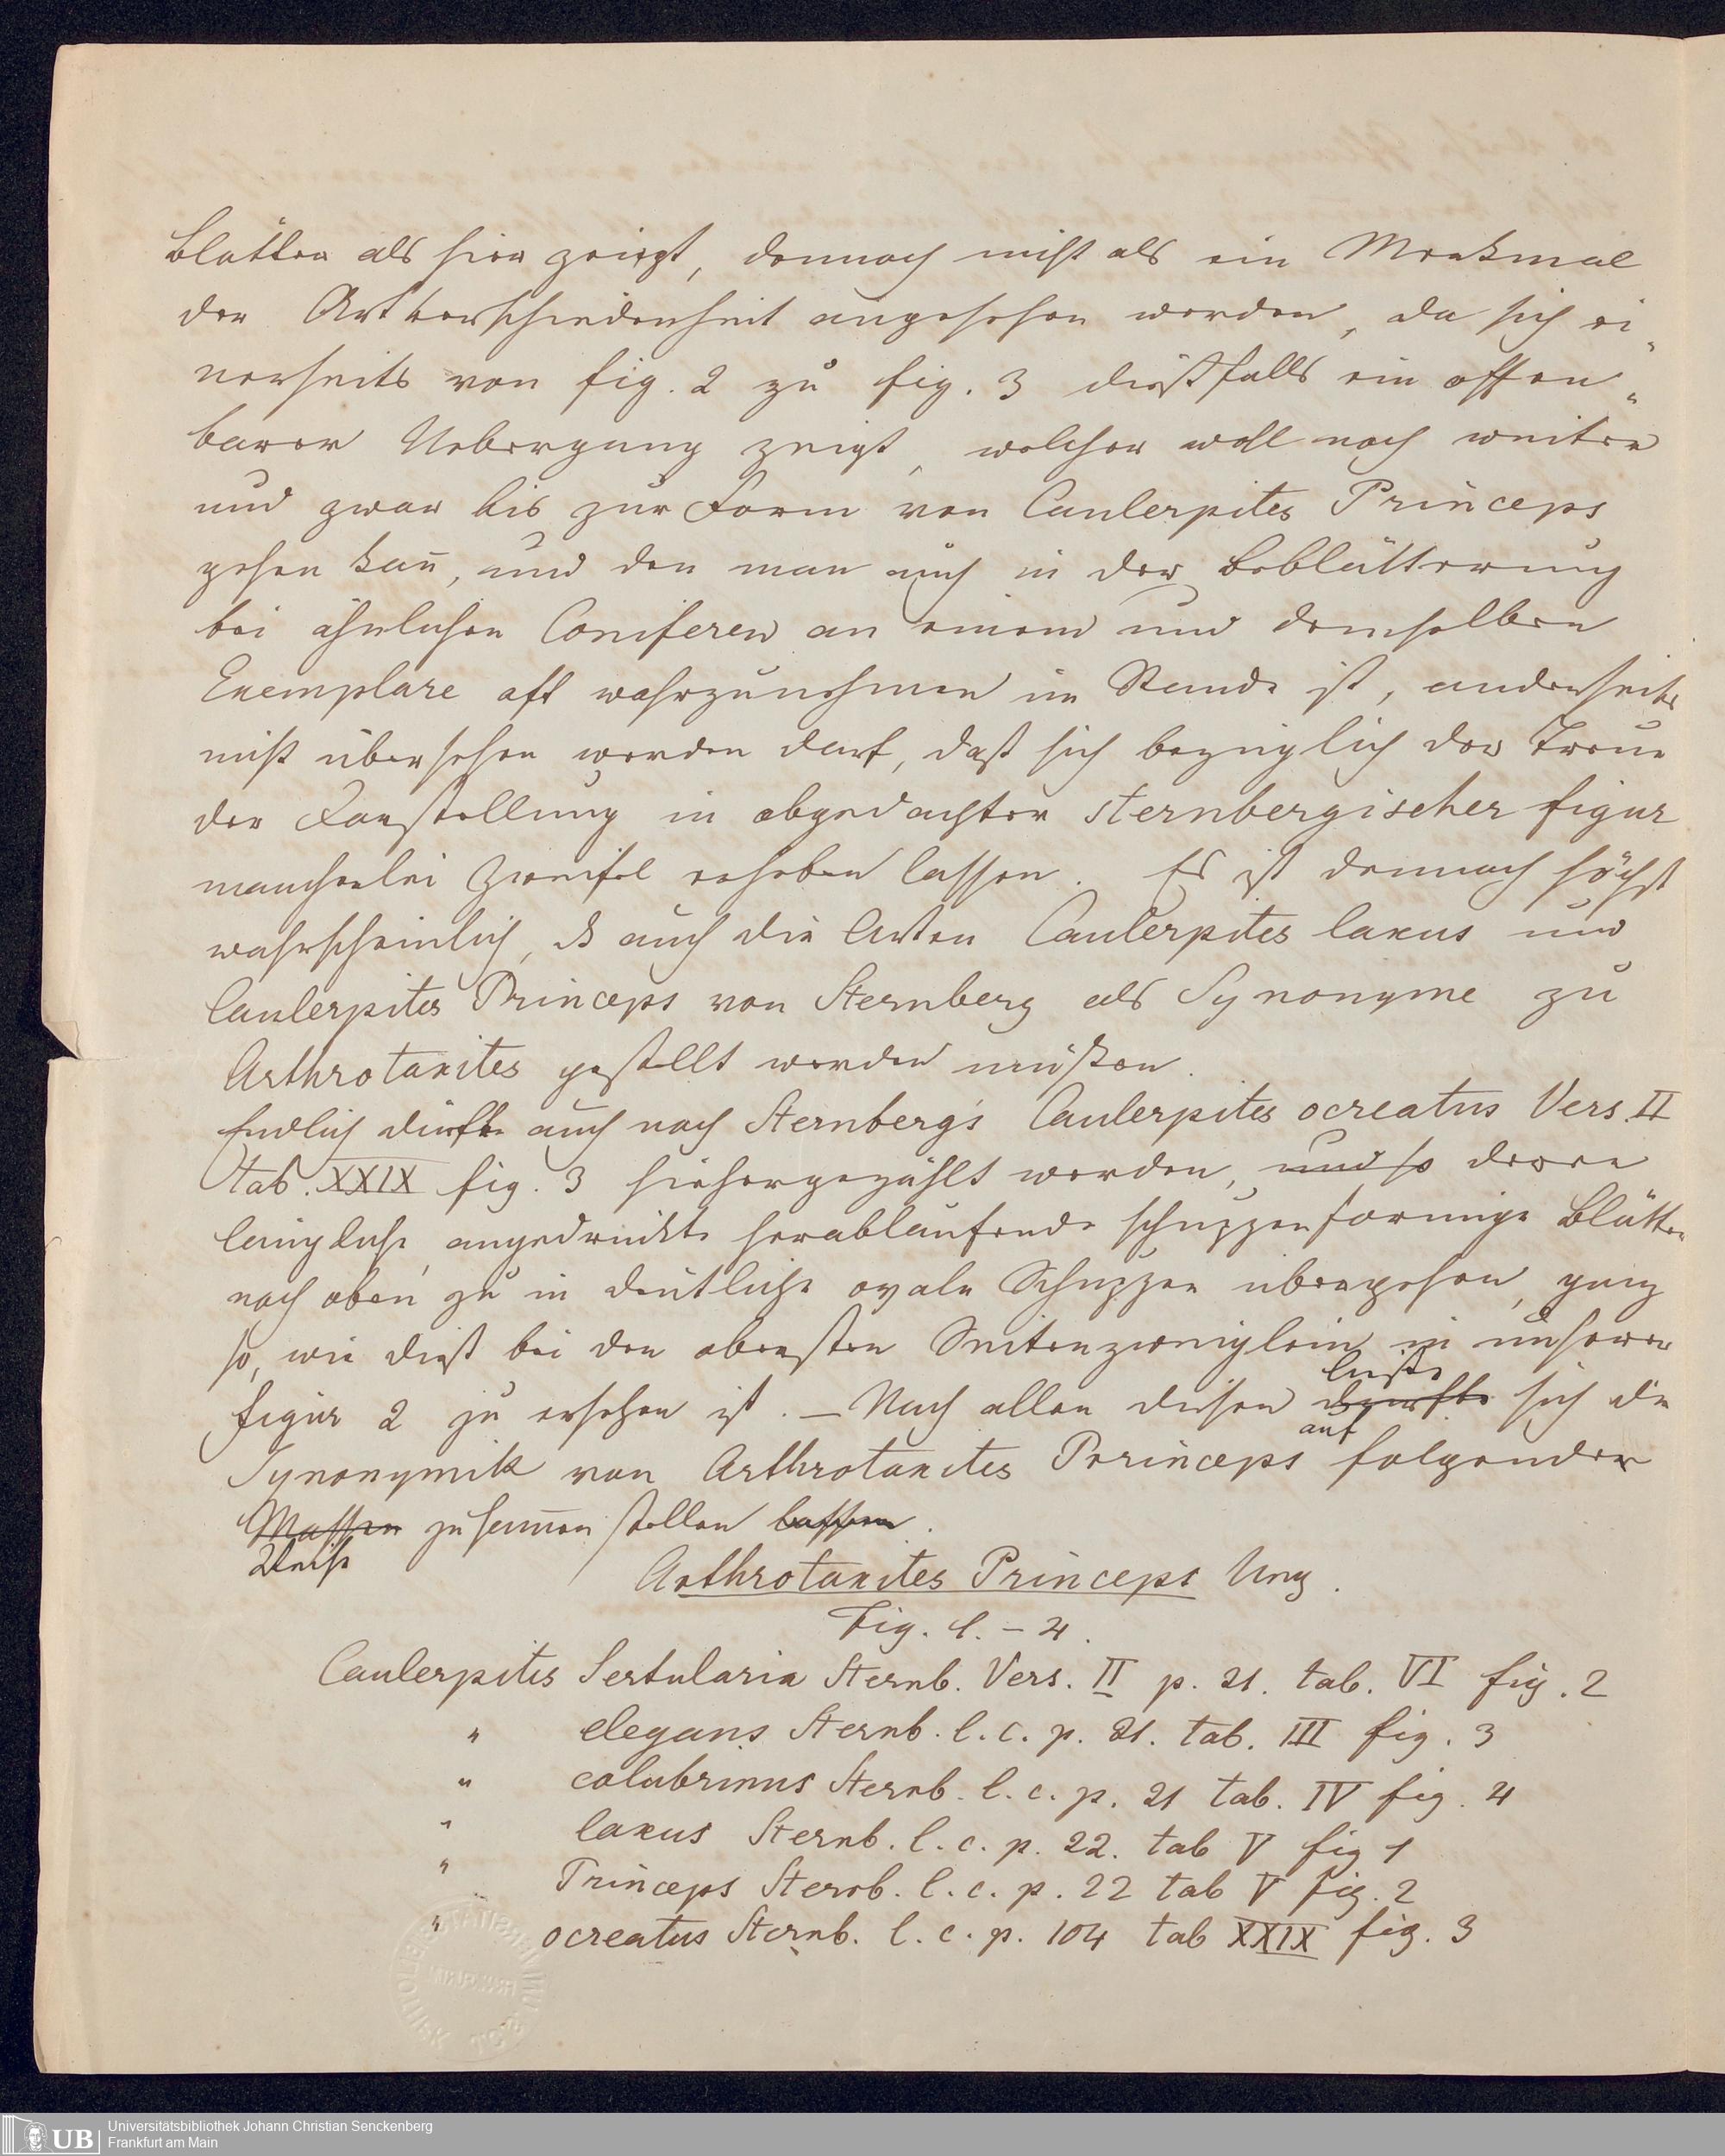 Blätter als hier zeigt, dennoch nicht als ein Merkmal
der Artverschiedenheit angesehen werden, da sich ei„
nerseits von fig. 2 zu fig. 3 dießfalls ein offen„
barer Uebergang zeigt, welcher wohl noch weiter
und zwar bis zur Form von Caulerpites Princeps
gehen kann̄, und den man auch in der Beblätterung
bei ähnlichen Coniferen an einem und demselben
Exemplare oft wahrzunehmen im Stande ist, anderseits
nicht übersehen werden darf, daß sich bezüglich der Treue
der Darstellung in obgedachter Sternbergischer figur
mancherlei Zweifel erheben lassen. Es ist demnach höchst
wahrscheinlich, dß auch die Arten Caulerpites laxus und
Caulerpites Princeps von Sternberg als Synonyme zu
Arthrotaxites gestellt werden müßen.
Endlich dürfte auch noch Sternberg's Caulerpites ocreatus Vers. II
tab. XXIX fig. 3 hiehergezählt werden, und so deren
längliche, angedrückte herablaufende schuppenformige Blätter
nach oben zu in deutliche ovale Schuppen übergehen, ganz
so, wie dieß bei den obersten Seitenzweiglein in unserer
ließe
figur 2 zu ersehen ist. — Nach allen diesen dürfte sich die
auf
Synonymik von Arthrotaxites Princeps folgender
Massen zusam̄en stellen lassen.
Weise
Arthrotaxites Princeps Ung.
Fig. 1. – 4.
Caulerpites Sertularia Sternb. Vers. II p. 21. tab. VI fig. 2
" elegans Sternb. l. c. p. 21. tab. III fig. 3
" colubrinus Sternb. l. c. p. 21 tab. IV fig. 4
" laxus Sternb. l. c. p. 22. tab V fig 1
" Princeps Sternb. l. c. p. 22 tab V fig. 2
" ocreatus Sternb. l. c. p. 104 tab XXIX fig. 3
UB
Universitätsbibliothek Johann Christian Senckenberg
Frankfurt am Main